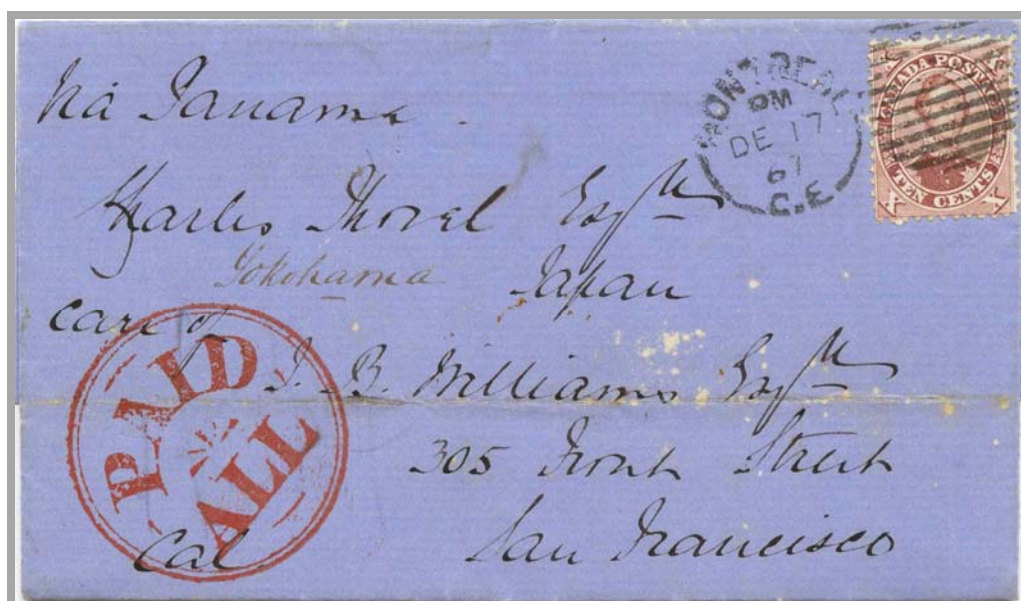 Via Panama.
MONTREAL
PM
DE 17
67
C.E
CANADA POSTAGE
TEN CENTS
X
X
Charles Thorel Esqre
Yokohama Japan
Care of
J. B. Williams Esqre
305 Front Street
Cal San Francisco
PAID
ALL